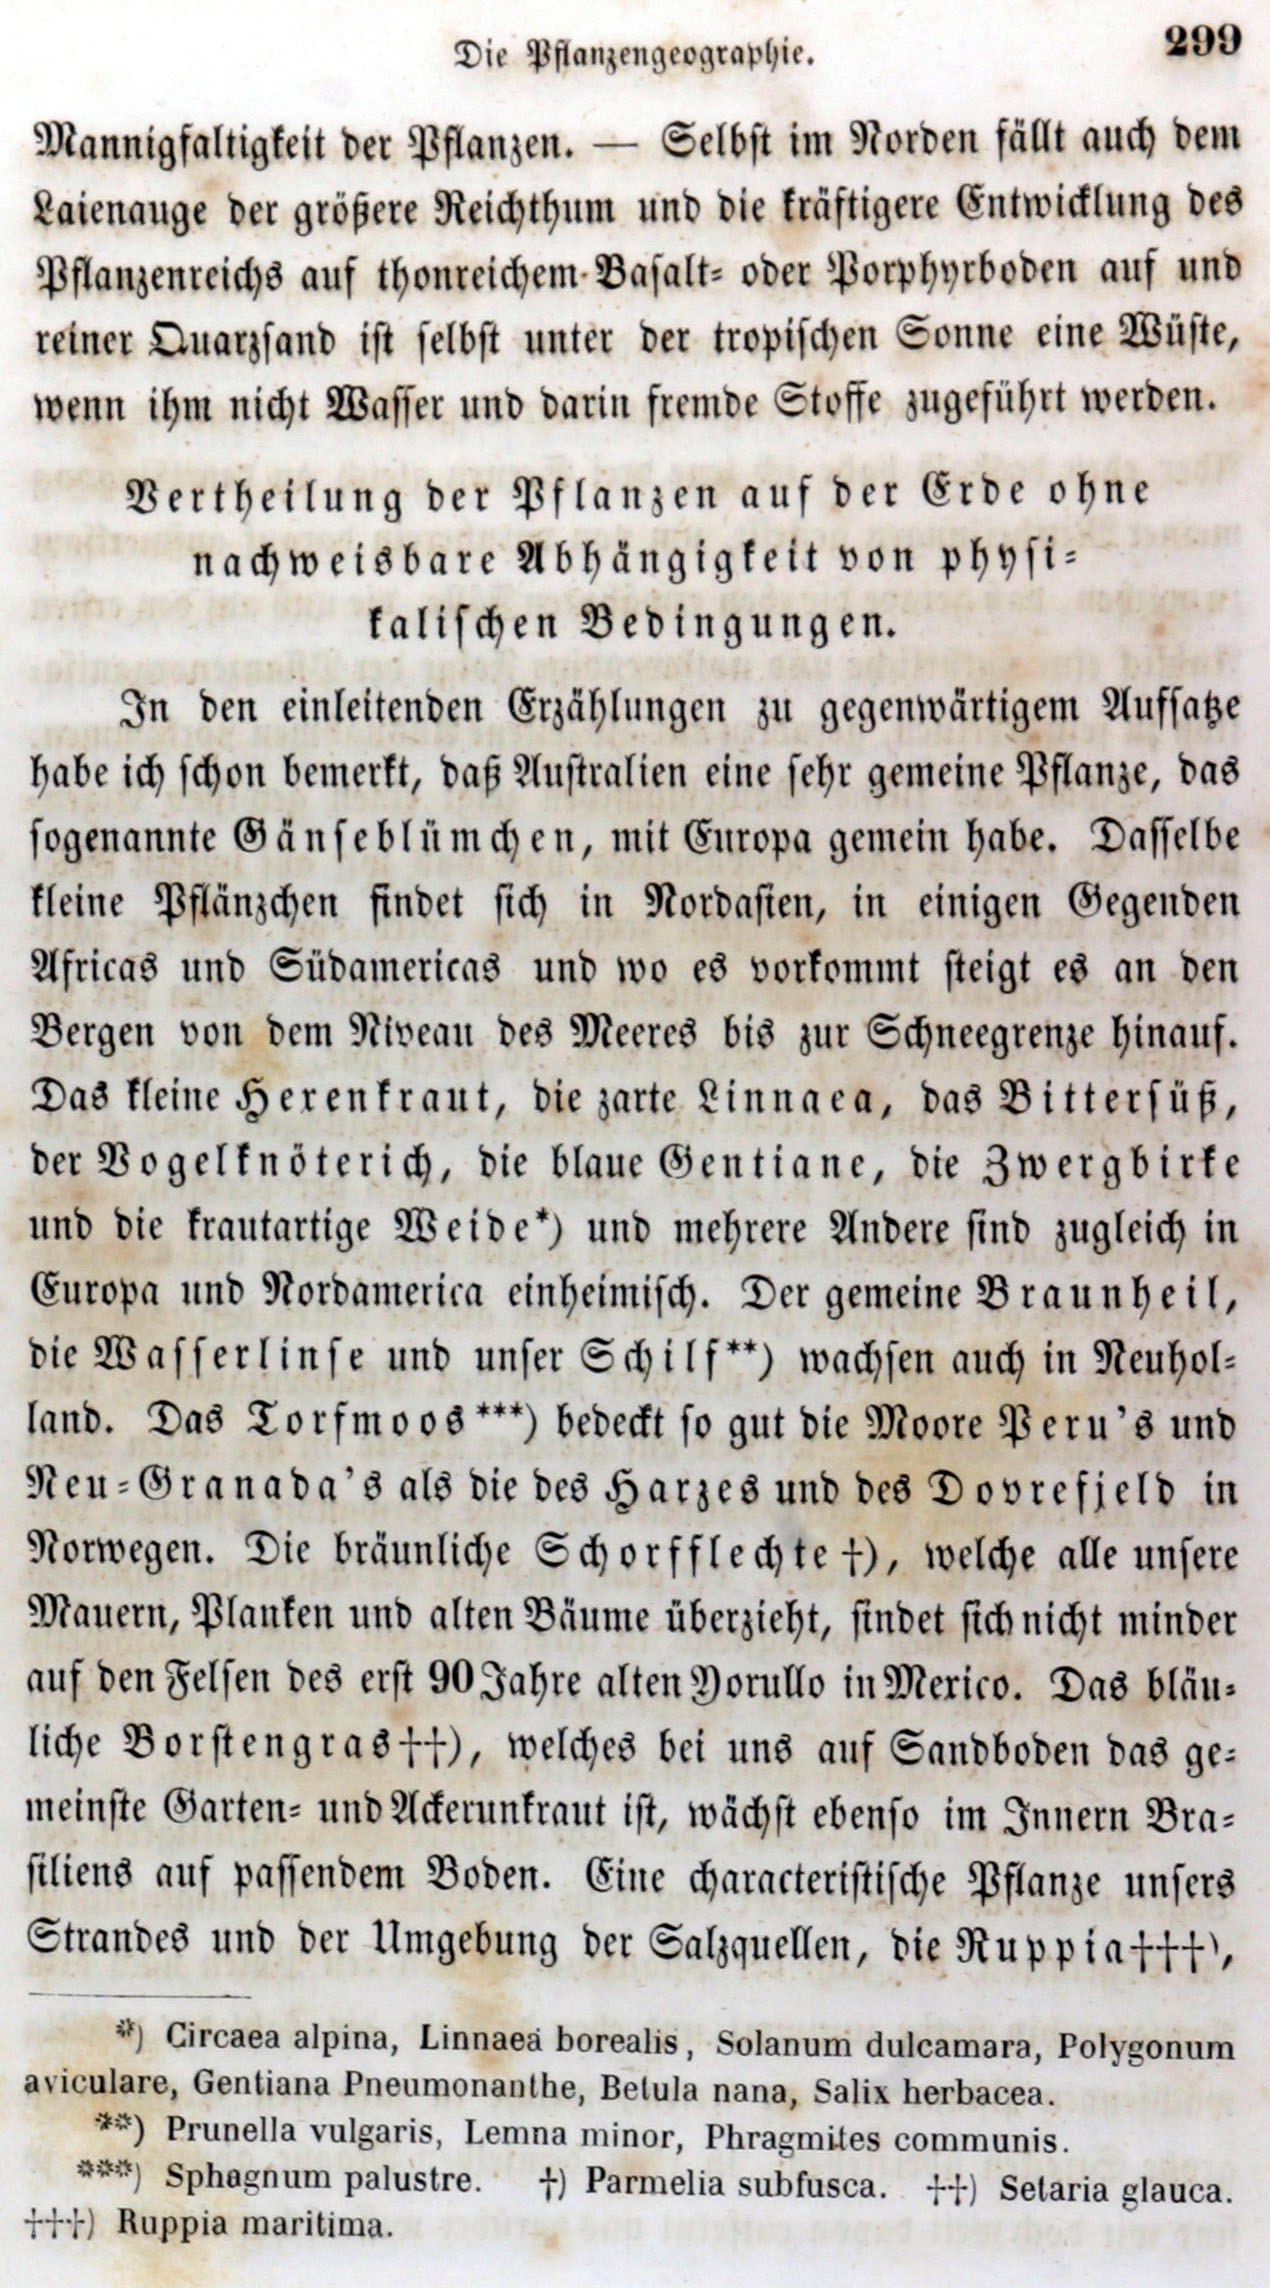 Die Pflanzengeographie.
299
Mannigfaltigkeit der Pflanzen. — Selbst im Norden fällt auch dem
Laienauge der größere Reichthum und die kräftigere Entwicklung des
Pflanzenreichs auf thonreichem Basalt- oder Porphyrboden auf und
reiner Quarzsand ist selbst unter der tropischen Sonne eine Wüste,
wenn ihm nicht Wasser und darin fremde Stoffe zugeführt werden.
Vertheilung der Pflanzen auf der Erde ohne
nachweisbare Abhängigkeit von physi-
kalischen Bedingungen.
In den einleitenden Erzählungen zu gegenwärtigem Aufsatze
habe ich schon bemerkt, daß Australien eine sehr gemeine Pflanze, das
sogenannte Gänseblümchen, mit Europa gemein habe. Dasselbe
kleine Pflänzchen findet sich in Nordasien, in einigen Gegenden
Africas und Südamericas und wo es vorkommt steigt es an den
Bergen von dem Niveau des Meeres bis zur Schneegrenze hinauf.
Das kleine Hexenkraut, die zarte Linnaea, das Bittersüß,
der Vogelknöterich, die blaue Gentiane, die Zwergbirke
und die krautartige Weide*) und mehrere Andere sind zugleich in
Europa und Nordamerica einheimisch. Der gemeine Braunheil,
die Wasserlinse und unser Schilf**) wachsen auch in Neuhol-
land. Das Torfmoos***) bedeckt so gut die Moore Peru's und
Neu-Granada's als die des Harzes und des Dovrefjeld in
Norwegen. Die bräunliche Schorfflechte†), welche alle unsere
Mauern, Planken und alten Bäume überzieht, findet sich nicht minder
auf den Felsen des erst 90 Jahre alten Yorullo in Mexico. Das bläu-
liche Borstengras††), welches bei uns auf Sandboden das ge-
meinste Garten- und Ackerunkraut ist, wächst ebenso im Innern Bra-
siliens auf passendem Boden. Eine characteristische Pflanze unsers
Strandes und der Umgebung der Salzquellen, die Ruppia†††),
*) Circaea alpina, Linnaea borealis, Solanum dulcamara, Polygonum
aviculare, Gentiana Pneumonanthe, Betula nana, Salix herbacea.
**) Prunella vulgaris, Lemna minor, Phragmites communis.
***) Sphagnum palustre. †) Parmelia subfusca. ††) Setaria glauca.
†††) Ruppia maritima.